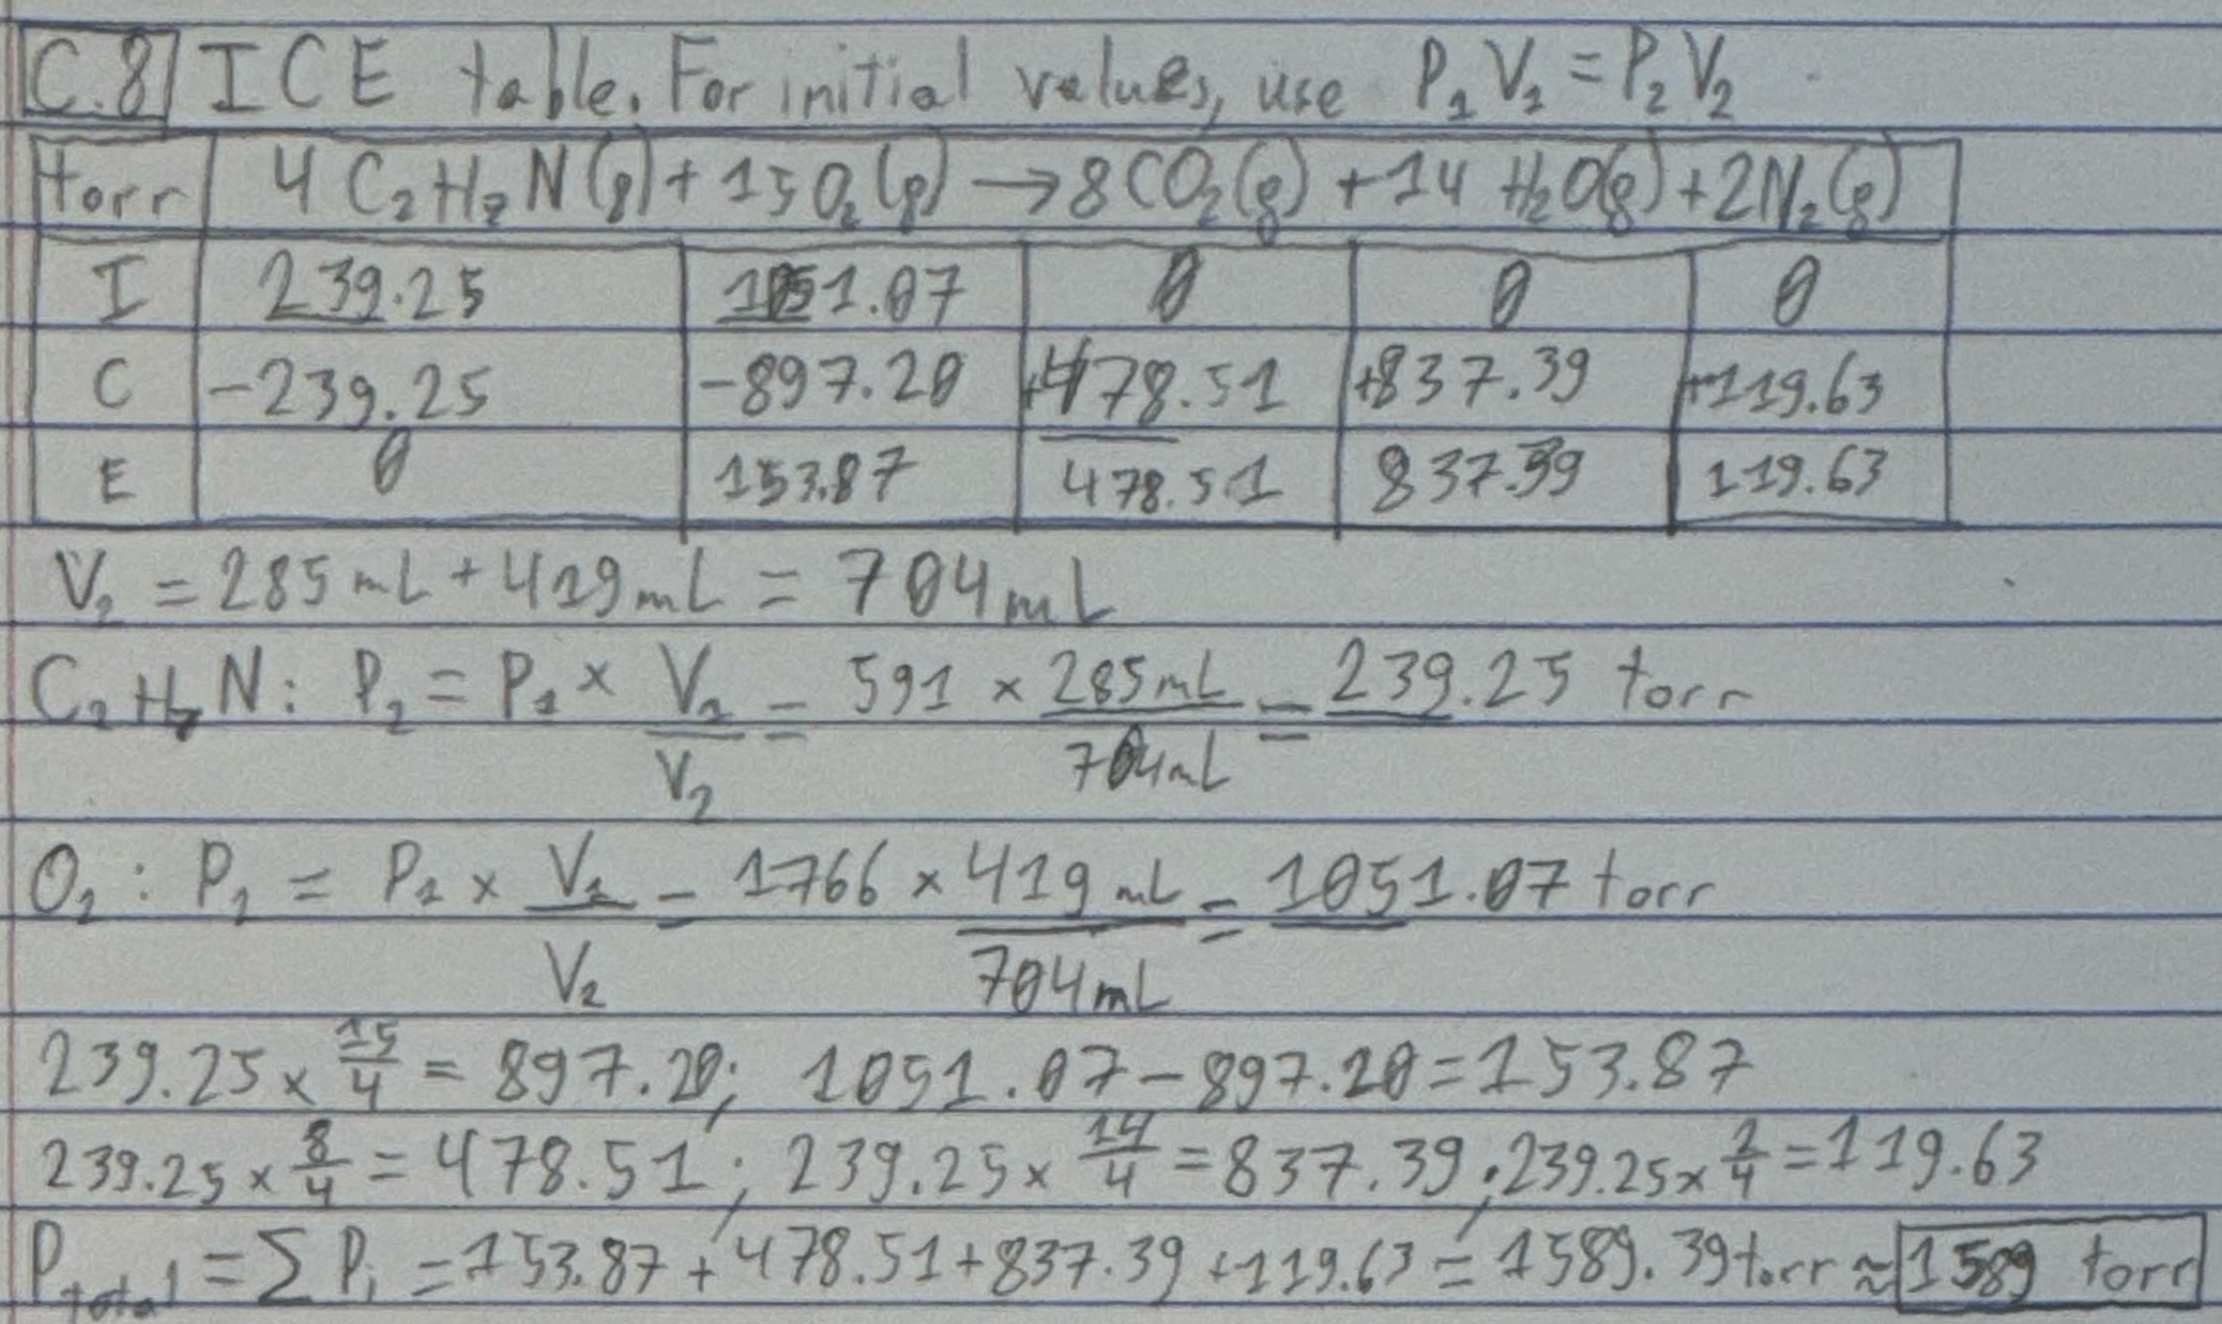 C.8 ICE table. For initial values, use P₁V₁ = P₂V₂
torr 4 C₂H₇N(g) + 15O₂(g) → 8CO₂(g) + 14 H₂O(g) + 2N₂(g)
I 239.25 1051.07 0 0 0
C -239.25 -897.20 +478.51 +837.39 +119.63
E 0 153.87 478.51 837.39 119.63
V₂ = 285 mL + 419 mL = 704 mL
C₂H₇N: P₂ = P₁ × V₁/V₂ = 591 × 285 mL/704 mL = 239.25 torr
O₂: P₂ = P₁ × V₁/V₂ = 1766 × 419 mL/704 mL = 1051.07 torr
239.25 × 15/4 = 897.20; 1051.07 - 897.20 = 153.87
239.25 × 8/4 = 478.51; 239.25 × 14/4 = 837.39; 239.25 × 2/4 = 119.63
P_total = ∑ Pᵢ = 153.87 + 478.51 + 837.39 + 119.63 = 1589.39 torr ≈ 1589 torr